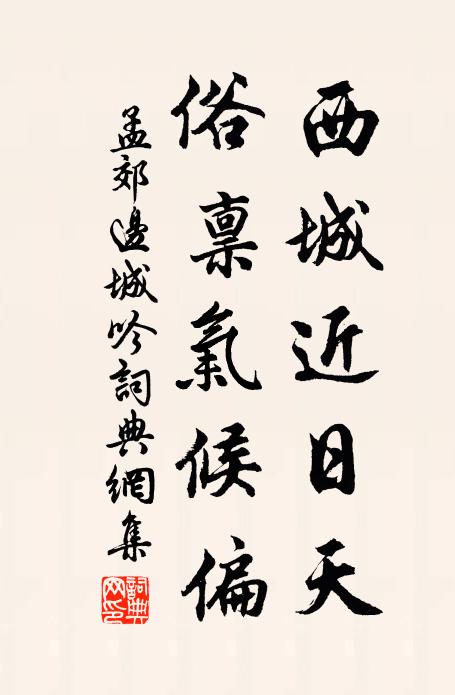 西城近日天
俗稟氣候偏
孟郊邊城吟詞典網集
詞典
网印